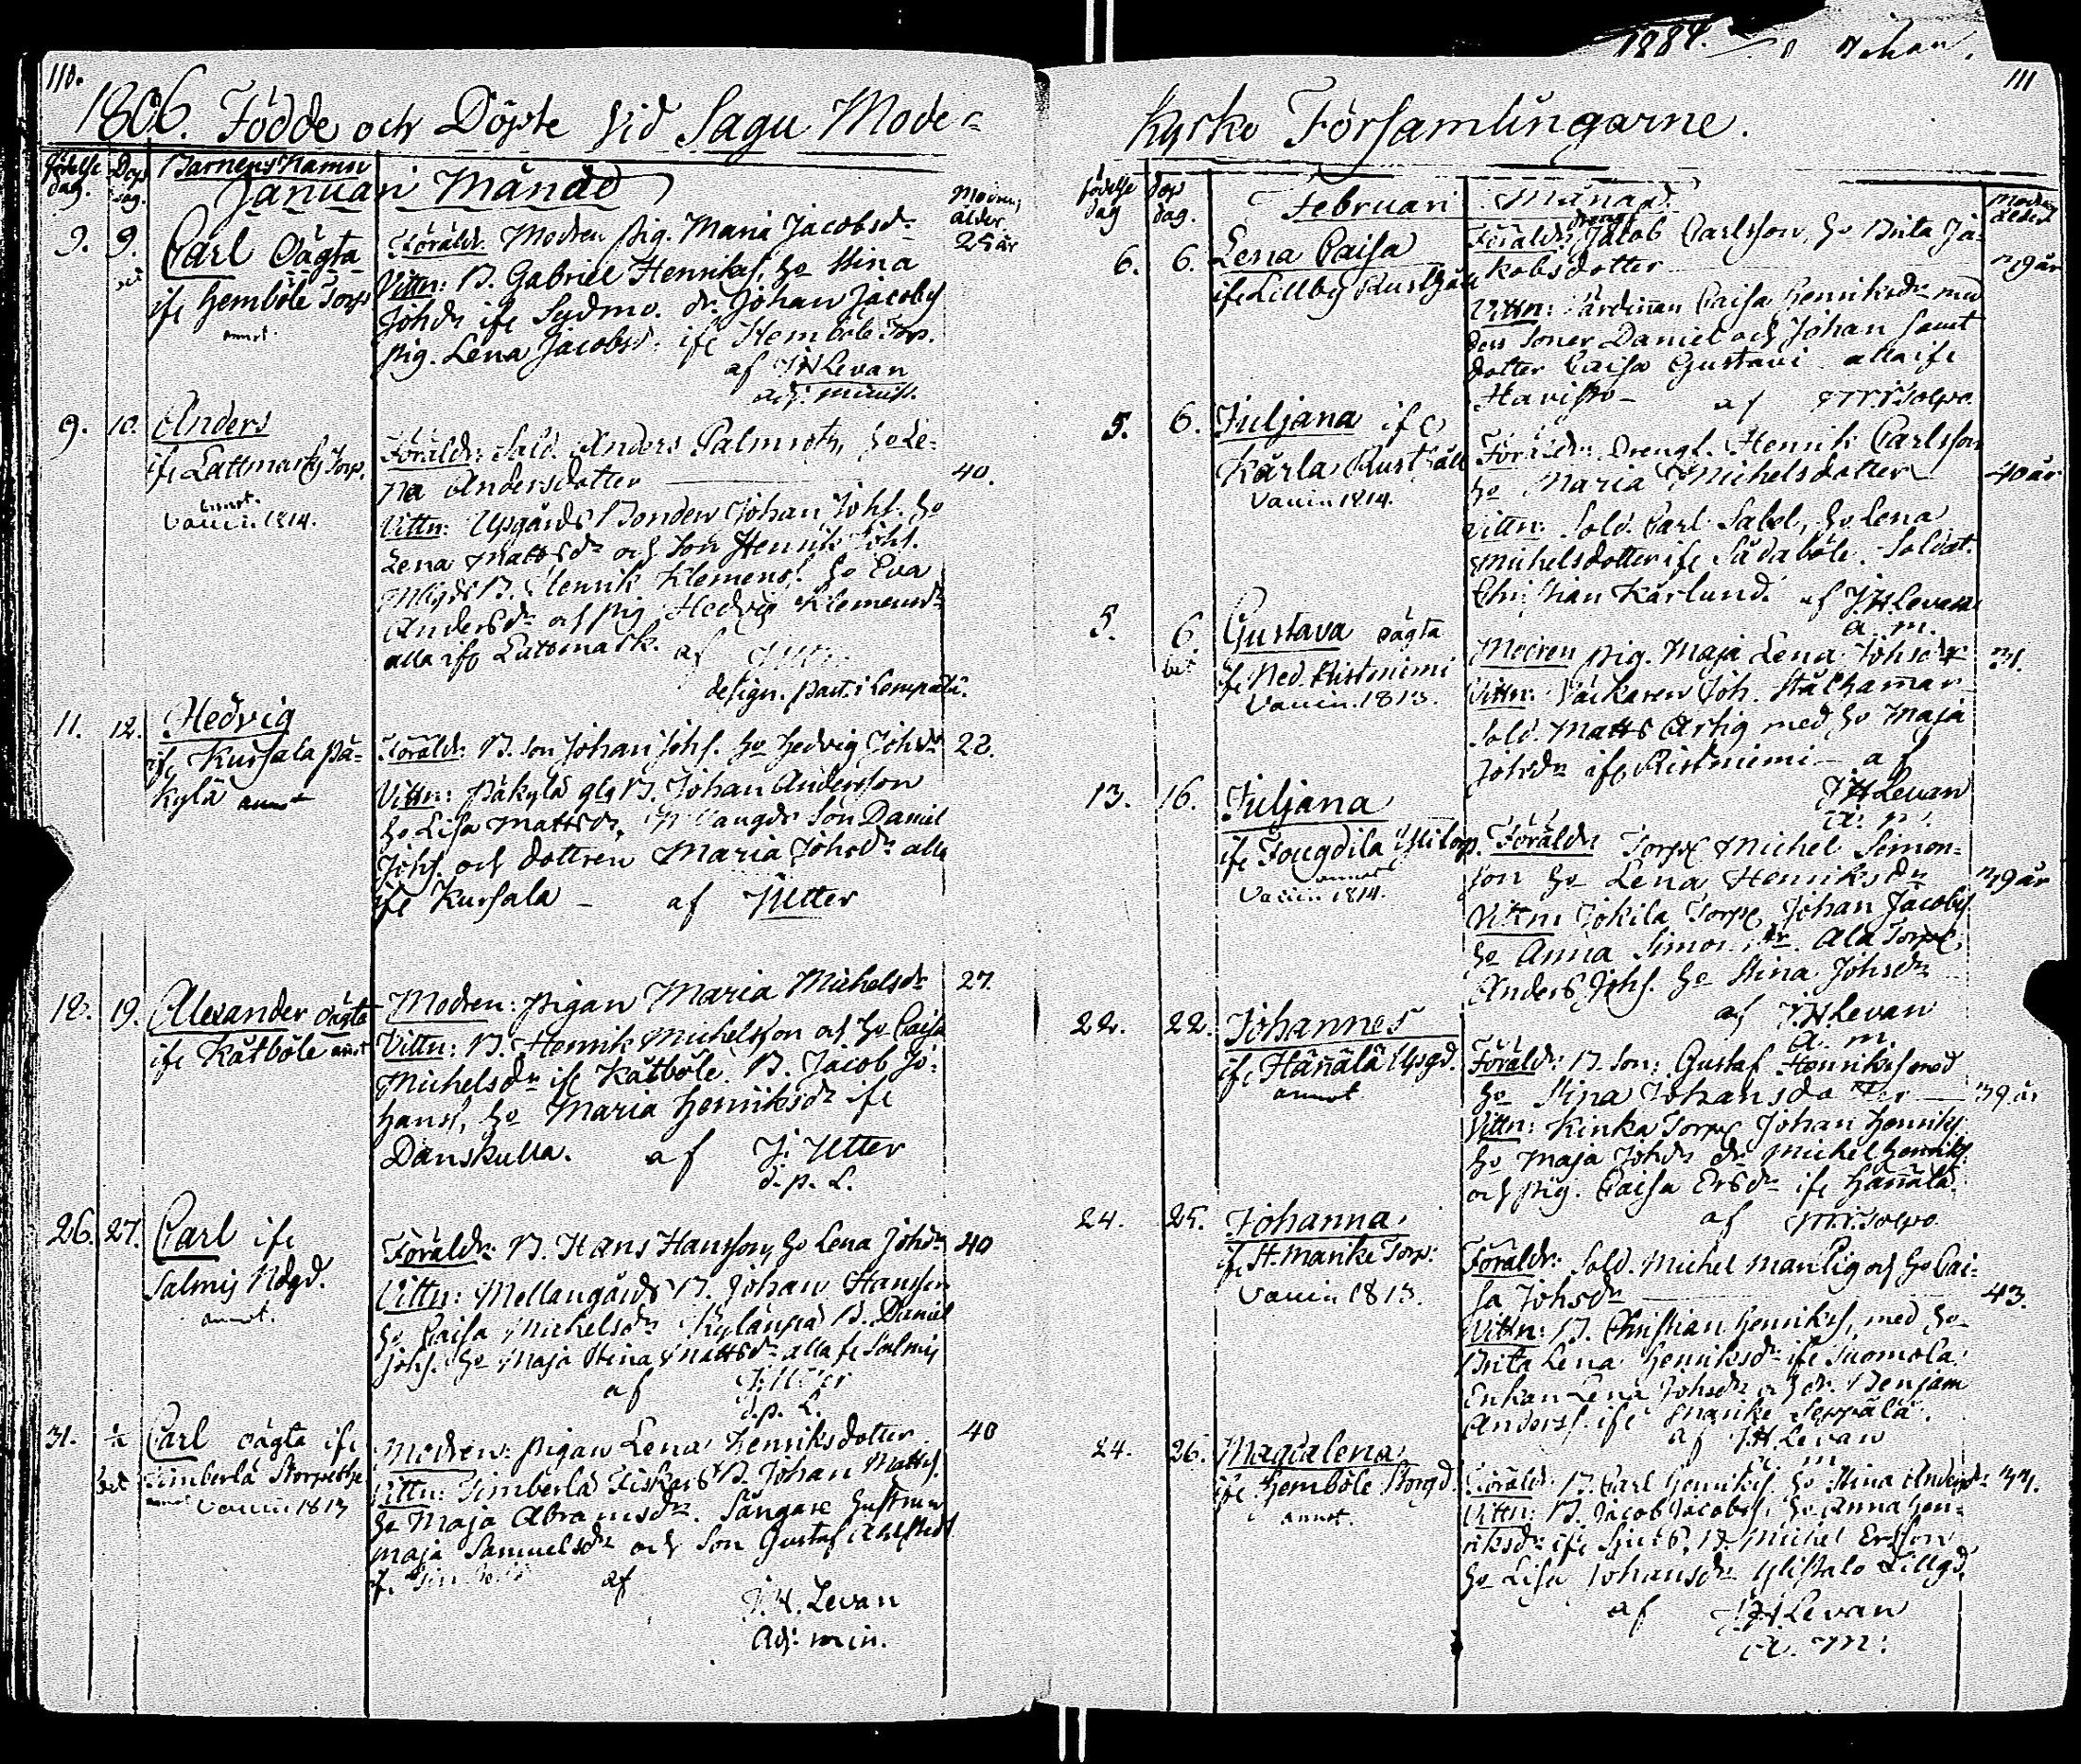 110.
1806. Födde och Döpte vid Sagu Mode=
födelse dag. Dop dag. Barnens Namn
Januari Månad
Modrens ålder
9. 9. Carl oägta
ifr Hemböle Torp
annot.
Föräldr: Modren pig. Maria Jacobsdr 25 år
Vittn: B. Gabriel Henriks. Ho Stina
Johdr ifr Sydmo. dr. Johan Jacobss
pig. Lena Jacobsd. ifr Hemböle Torp.
af JH Levan
adj: minist.
9. 10. Anders
ifr Lattmarks Torp.
annot.
Vaccin. 1814.
Föräldr: Sold. Anders Palmroth, Ho Le=
na Andersdotter 40.
Vittn: Upgårds Bonden Johan Johs. Ho
Lena Mattsdr och Son Henrik Johs.
B. Henrik Klemens. Ho Eva
Andersdr och pig Hedvig Klemensdr
alla ifr Lattmark. af
design. past. i Lempälä.
11. 12. Hedvig
ifr Kursala Pä=
kylä annot
Föräldr: B. Son Johan Johs. Ho Hedvig Johsdr 22.
Vittn: Päkylä B. Johan Andersson
Ho Lisa Mattsdr, Son Daniel
Johs. och dottren Maria Johsdr alla
ifr Kursala — af J Utter
12. 19. Alexander oägta
ifr Kåtböle annot
Modren: pigan Maria Michelsdr 27.
Vittn: B. Henrik Michelsson och Ho Caisa
Michelsdr ifr Kåtböle. B. Jacob Jo=
hanss, Ho Maria Henriksdr ifr
Danskulla. af J. Utter
d. p. L.
26. 27. Carl ifr
Salmis Ndgd.
annot.
Föräldr: B. Hans Hansson, Ho Lena Johsdr 40
Vittn: Mellangårds B. Johan Hansson
Ho Caisa Michelsdr Kylänpä B. Daniel
Johs. Ho Maja Stina Mattsdr alla fr Salmis
af J. Utter
d. p. L.
31. Carl oägta ifr
Timberlä
annot Vaccin 1813
Modren: pigan Lena Henriksdotter 40
Vittn: Timberlä Fiskars B. Johan Matts.
Ho Maja Abramsdr. Sångare Hustrun
Maja Samuelsdr och Son Gustaf Ahlstedt
af
J. H. Levan
Adj: min.
1884.
111
Kyrko Församlingarne.
födelse dag dop dag.
Februari Månad.
Modrens ålder
6. 6. Lena Caisa
ifr Lillby Rusthåll
Föräldr: dreng Jacob Carlsson, Ho Brita Ja=
kobsdotter 39 år
Vittn: Värdinan Caisa Henriksdr med
dess Söner Daniel och Johan samt
dotter Caisa Gustavi alla ifr
Havisto — af
5. 6. Juljana ifr
Kärla Rusthåll
Vaccin 1814.
Föräldr: Drengk. Henrik Carlsson
Ho Maria Michelsdotter 40 år
Vittn: Sold. Carl Sabel, Ho Lena
Michelsdotter ifr Sådaböle. Soldat.
Christian Kärlund. af J.H. Levan
a. m.
5. 6. Gustava oägta
ifr Ned. Ristniemi
Vaccin. 1813.
Modren pig. Maja Lena Johsdr 31.
Vittn: Väckaren Joh. Stålhamar
Sold. Matts Artig med Ho Maja
Johsdr ifr Ristniemi — af
J H Levan
a. m.
13. 16. Juljana
ifr Fougdila Ylitorp.
annot
Vaccin 1814.
Föräldr Torp. Michel Simon=
son Ho Lena Henriksdr 39 år
Vittn: Jokila Torp. Johan Jacobs
Ho Anna Simonsdr. Ala Torp.
Anders Johs. Ho Stina Johsdr
af J.H. Levan
a. m.
22. 22. Johannes
ifr Hännälä Upgd.
annot.
Föräldr: B. Son: Gustaf Henriks med
Ho Stina Johansdotter — 39 år
Vittn: Kinka Torp. Johan Henriks
Ho Maja Johdr dr. Michel Henriks.
och pig. Caisa Ersdr ifr Hännälä.
af
24. 25. Johanna
ifr St. Marike Torp.
Vaccin 1813.
Föräldr: Sold. Michel Manlig och Ho Cai=
sa Johsdr 43.
Vittn: B. Christian Henriks, med Ho
Brita Lena Henriksdr ifr Suomola.
Enkan Lena Johsdr och dr. Benjam
Anders. ifr Marike Seppälä.
af J.H. Levan
24. 26. Magdalena
ifr Hemböle Storgd.
annot.
Föräldr: B. Carl Henriks Ho Stina Andersdr 34.
Vittn: B. Jacob Jacobs, Ho Anna Hen=
riksdr ifr B. Michel Ersson
Ho Lisa Johansdr Ylistalo Lillgd,
af J H Levan
A. M.